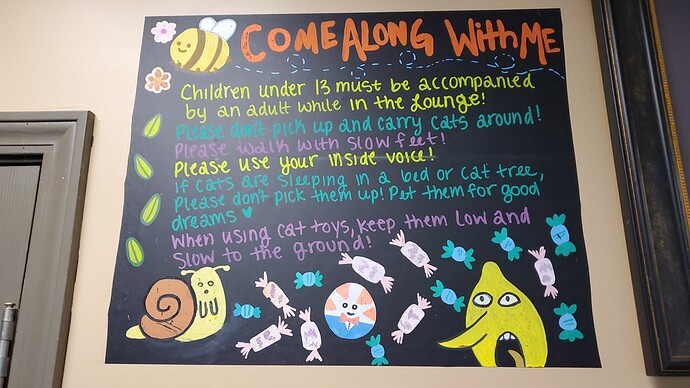 COME ALONG WITH ME
Children under 13 must be accompanied
by an adult while in the Lounge!
Please don't pick up and carry cats around!
Please walk with slow feet!
Please use your inside voice!
If cats are sleeping in a bed or cat tree,
Please don't pick them up! Pet them for good
dreams ♥
When using cat toys, keep them low and
slow to the ground!